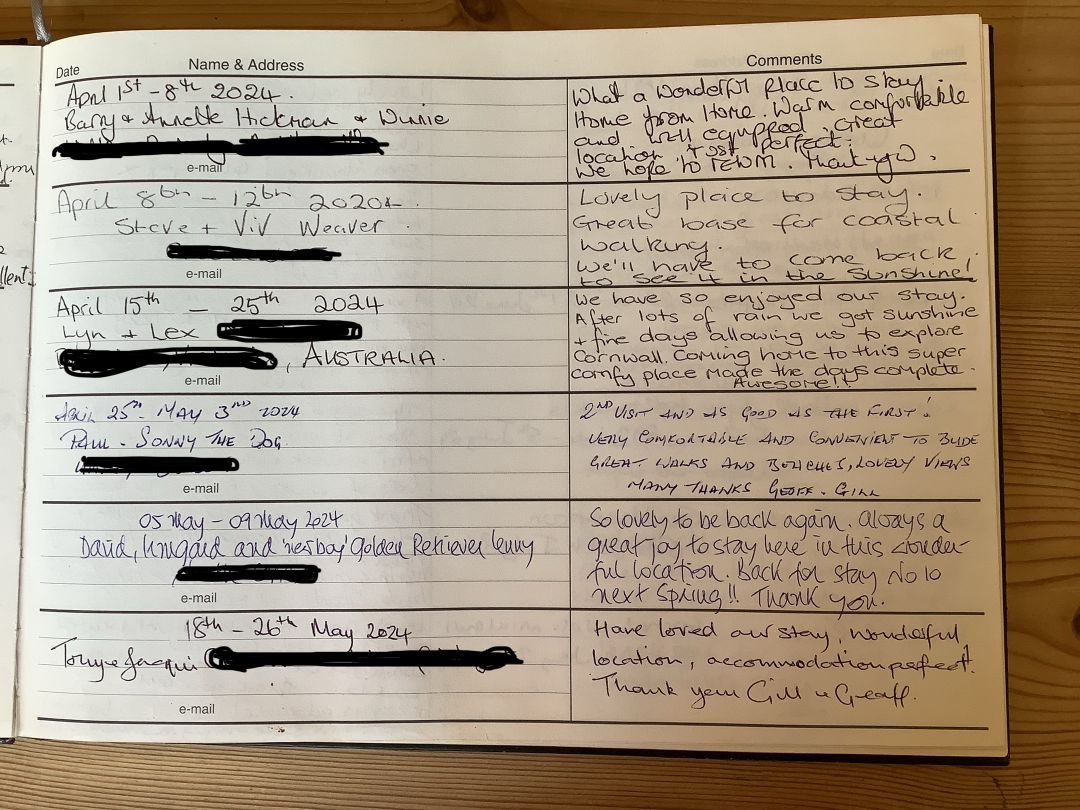 Date Name & Address Comments
April 1st - 8th 2024.
Barry & Annette Hickman & Winnie
e-mail
What a Wonderful place to stay.
Home from Home. Warm comfortable
and well equipped. Great
location. Just perfect.
We hope to return. Thank you.
April 8th - 12th 2024.
Steve + Viv Weaver.
e-mail
Lovely place to stay.
Great base for coastal
walking.
We'll have to come back
to see it in the sunshine!
April 15th - 25th 2024
Lyn + Lex
, AUSTRALIA.
e-mail
We have so enjoyed our stay.
After lots of rain we got sunshine
+ fine days allowing us to explore
Cornwall. Coming home to this super
comfy place made the days complete.
Awesome!!
April 25th - MAY 3RD 2024
PAUL - SONNY THE DOG
e-mail
2ND VISIT AND AS GOOD AS THE FIRST!
VERY COMFORTABLE AND CONVENIENT TO BUDE
GREAT WALKS AND BEACHES, LOVELY VIEWS
MANY THANKS GEOFF. GILL
05 May - 09 May 2024
David, and Golden Retriever Lenny
e-mail
So lovely to be back again. Always a
great joy to stay here in this wonder-
ful location. Back for stay No 10
next Spring!! Thank you.
18th - 26th May 2024
Tony & Jacqui
e-mail
Have loved our stay, wonderful
location, accommodation perfect.
Thank you Gill & Geoff.